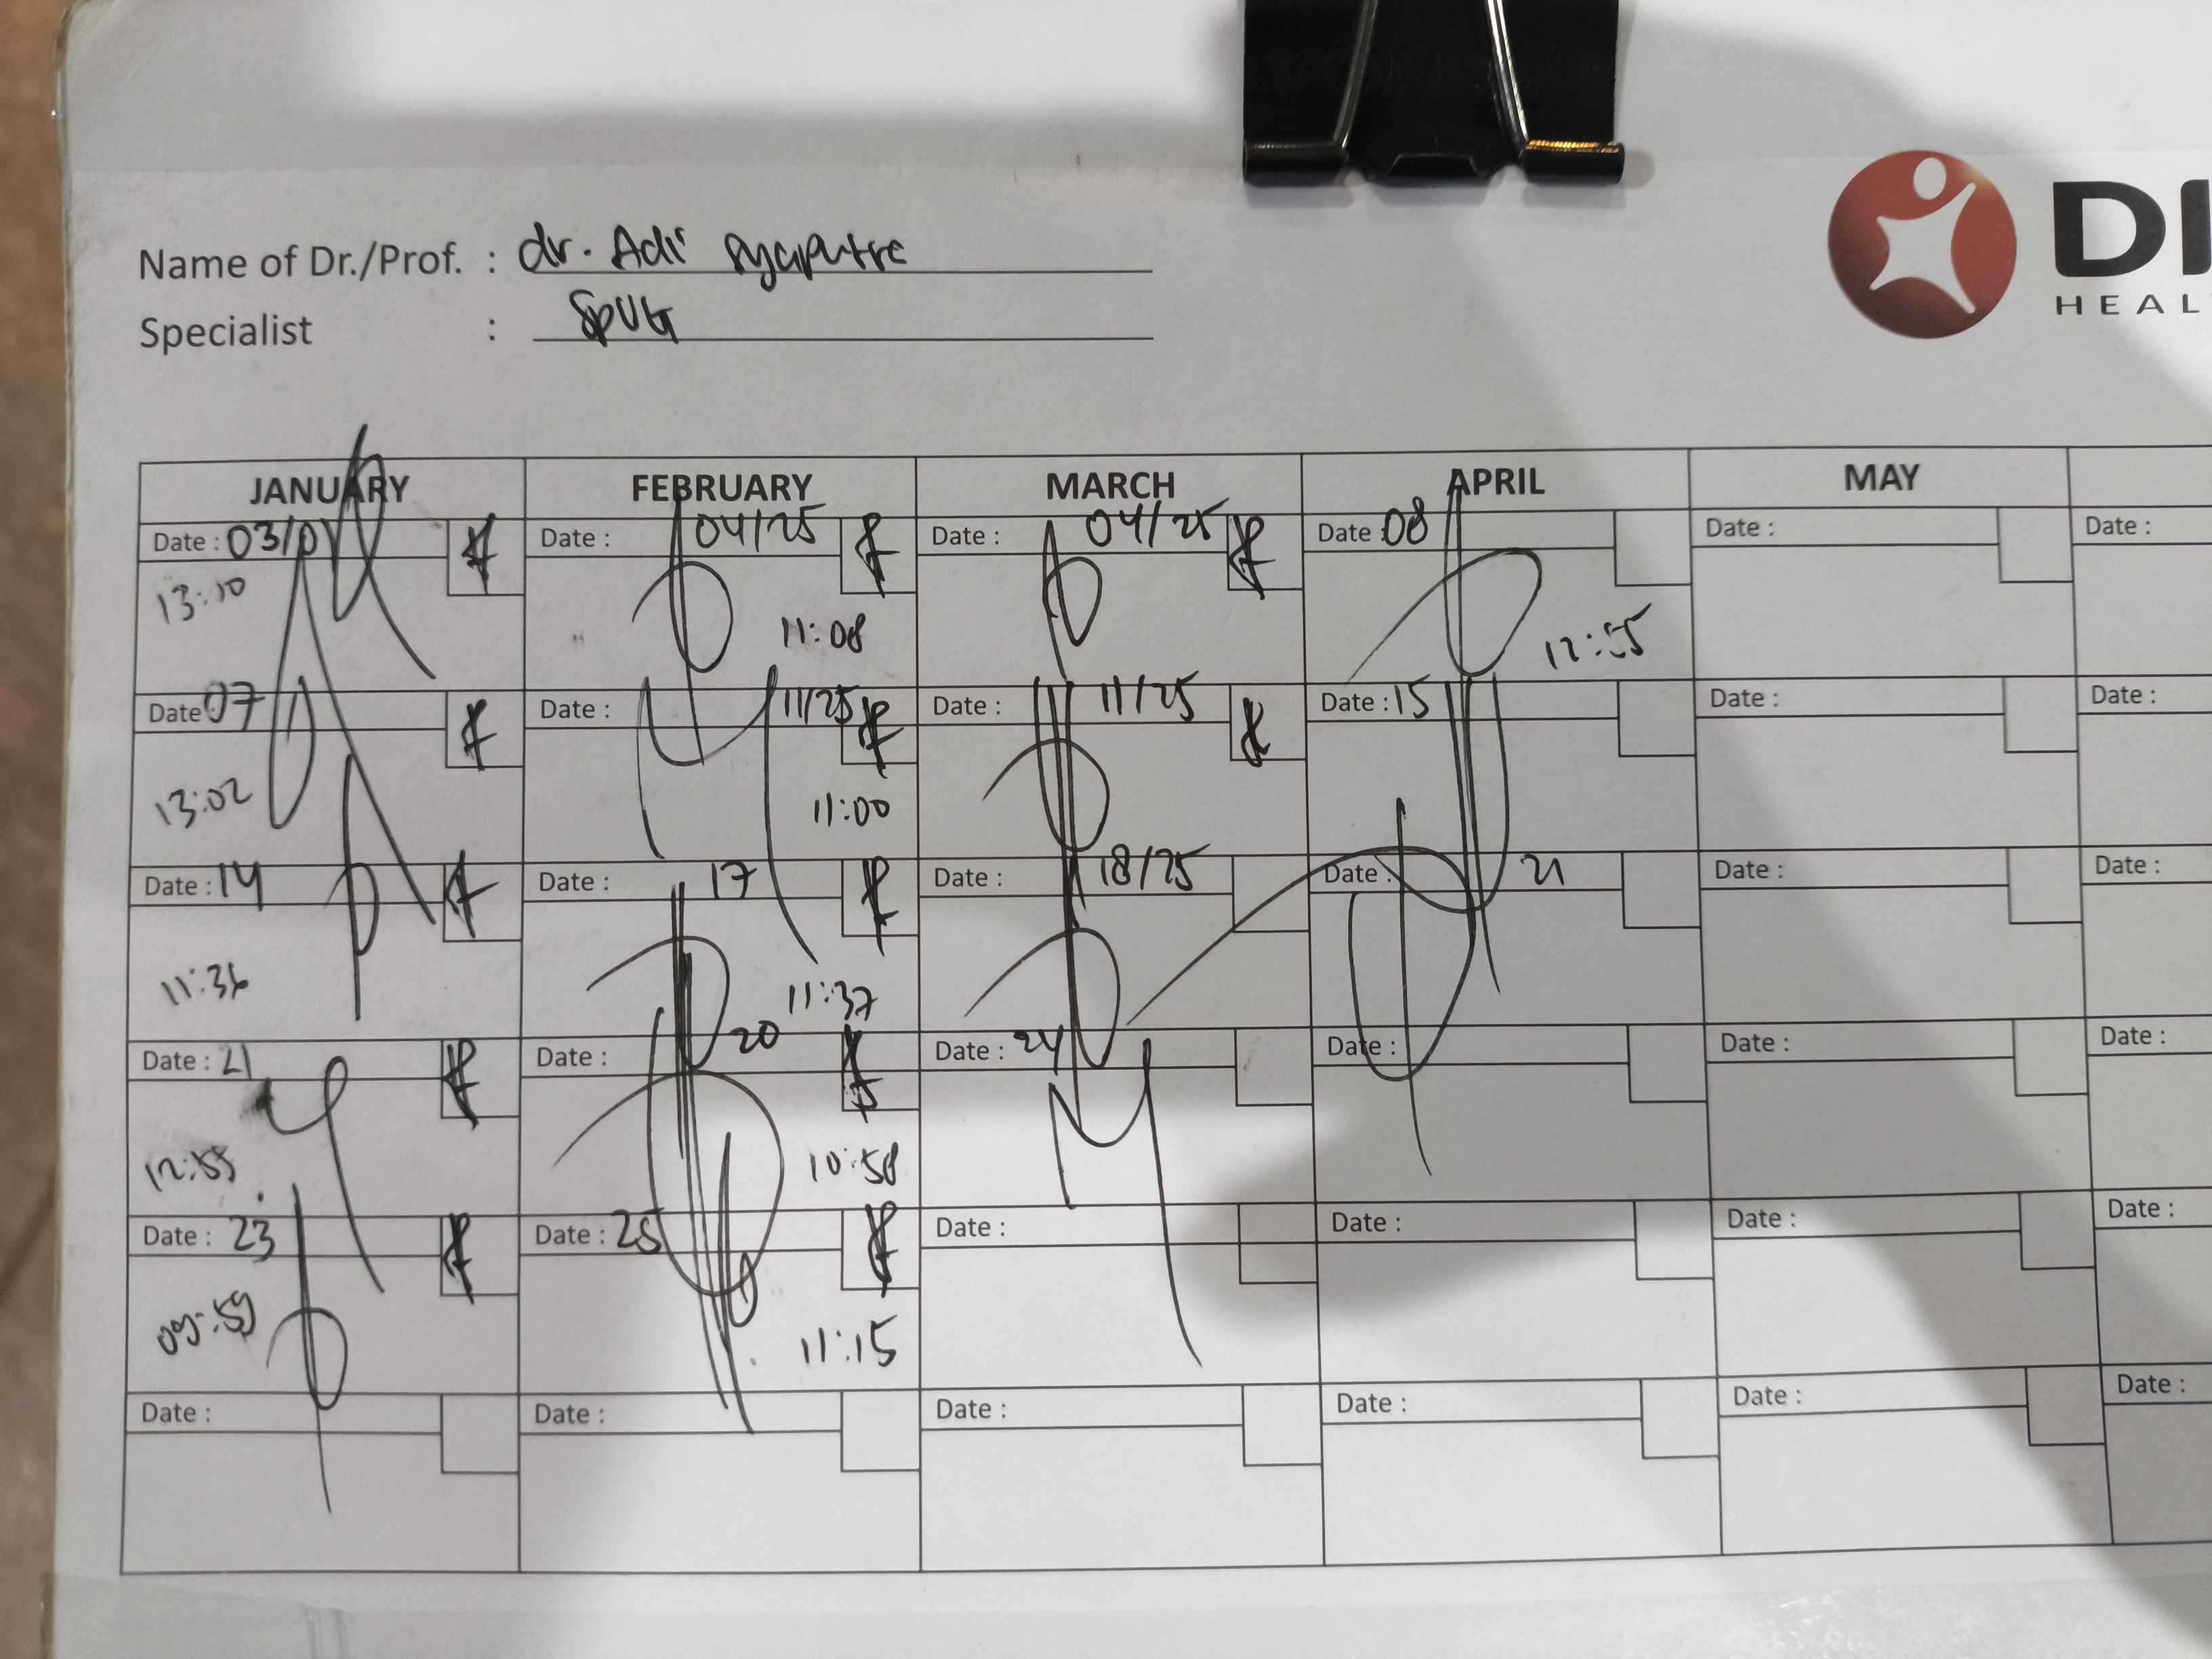 DI
HEAL
Name of Dr./Prof. : dr. Adi
Specialist :
JANUARY FEBRUARY MARCH APRIL MAY
Date : 03/01 Date : 04/25 Date : 04/25 Date : 08 Date : Date :
13:10 11:08 12:55
Date : 07 Date : 11/25 Date : 11/25 Date : 15 Date : Date :
13:02 11:00
Date : 14 Date : 17 Date : 18/25 Date : 21 Date : Date :
11:36 11:37
Date : 21 Date : 20 Date : 24 Date : Date : Date :
12:55 10:58
Date : 23 Date : 25 Date : Date : Date : Date :
09:59 11:15
Date : Date : Date : Date : Date : Date :